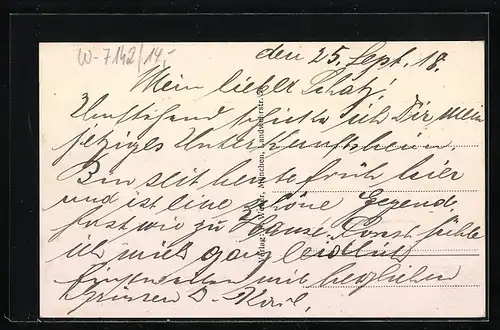 W-7142/14,-
den 25. Sept. 18.
Mein lieber Schatz!
Umstehend schicke ich Dir mein
jetziges Unterkunftsheim.
Bin seit heute früh hier
und ist eine schöne Gegend,
fast wie zu Hause. Sonst fühle
ich mich ganz leidlich
Einstweilen mit herzlichen
Grüssen D. Karl.
München, Landwehrstr.